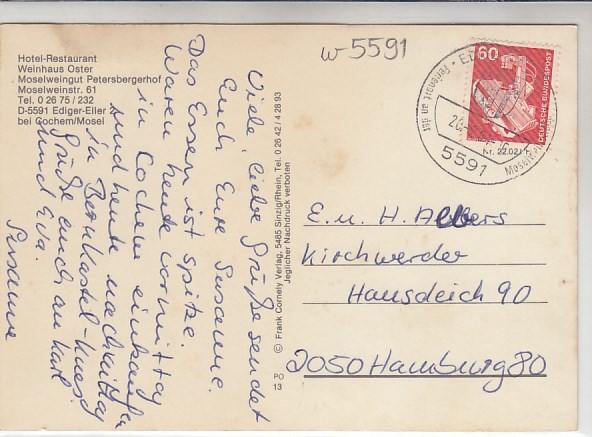 Hotel-Restaurant
Weinhaus Oster
Moselweingut Petersbergerhof
Moselweinstr. 61
Tel. 0 26 75 / 232
D-5591 Ediger-Eller
bei Cochem/Mosel
w-5591
60
DEUTSCHE BUNDESPOST
5591
Viele liebe Grüße sendet
Euch Eure Susanne.
Das Essen ist spitze.
Waren heute vormittag
in Cochem einkaufen
und heute nachmittag
in Bernkastel-Kues
Grüße auch an Karl
und Eva.
Susanne
© Frank Cornely Verlag, 5485 Sinzig/Rhein, Tel. 0 26 42 / 4 28 93
Jeglicher Nachdruck verboten
PO
13
E. u. H. Albers
Kirchwerder
Hausdeich 90
2050 Hamburg 80